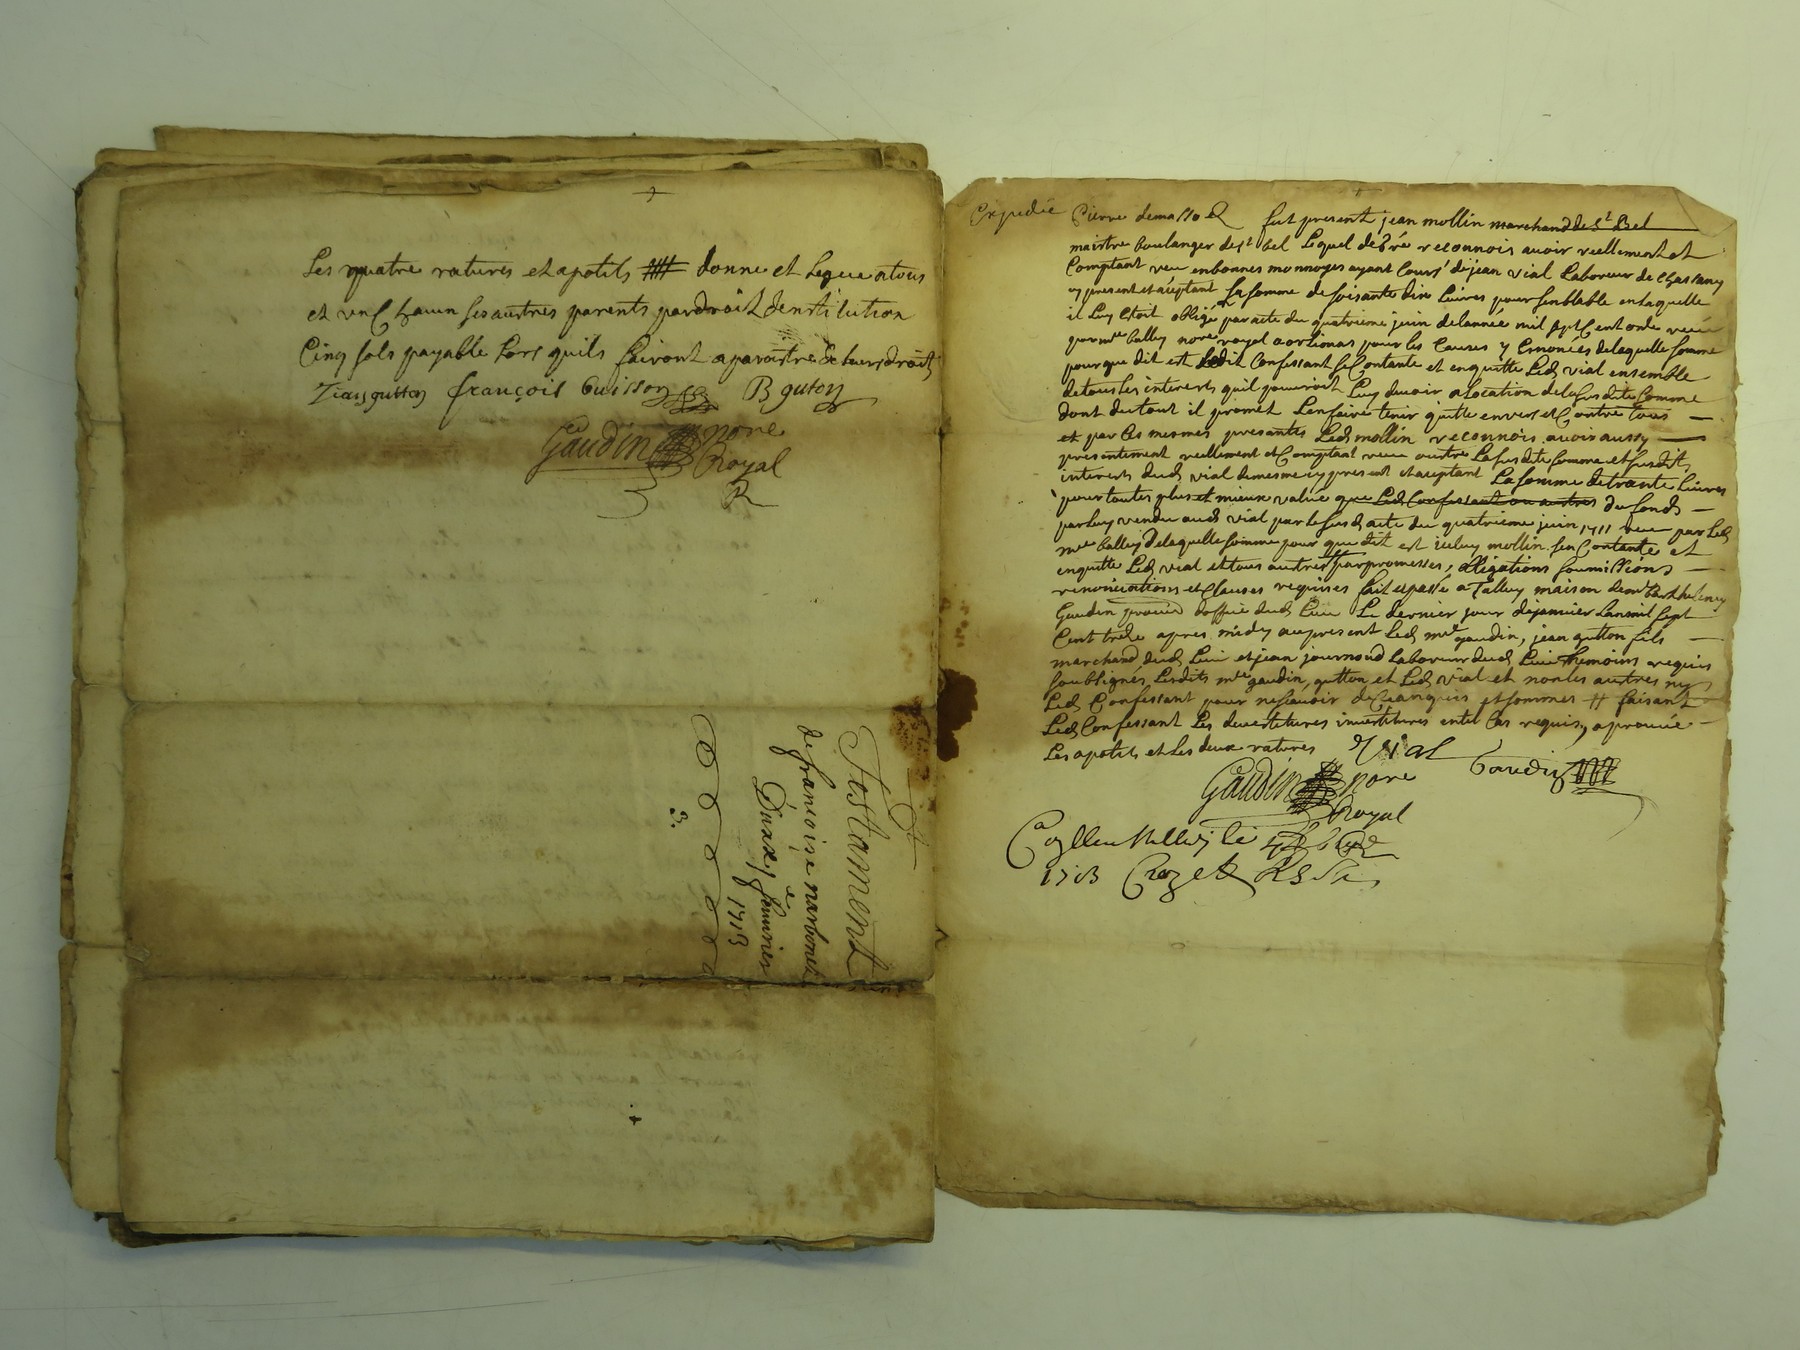 Les quatre ratures et apotils donne et legue atous
et un Chacun ses austres parents par droit dinstitution
Cinq sols payable Lors quils fairont aparoistre de Leurs droits
françois buisson B guton
Gaudin nore
Royal
Testament
de françoise narbonet
Du xx fevvrier
1713
3.
Expedié Pierre fut present jean mollin marchand de St Bel
maistre boulanger de st bel Lequel de gré reconnois avoir reellement et
Comptant reçu en bonnes monnoyes ayant Cours de jean vial Laboreur de Chassany
cy present et aceptant La somme de soisante dix Livres pour semblable en laquelle
il Luy Estoit obligé par acte du quatrieme juin de lannée mil sept Cent onze receu
par me balley nore royal pour les Causes y Ennonées de laquelle somme
pour que dit est Ledit Confessant se Contante et enquitte Led vial ensemble
de tous les interests quil pouvroit Luy devoir a location de la susdite somme
dont du tout il promet Len faire tenir quitte envers et Contre tous
et par Ces mesmes presantes Led mollin reconnois avoir aussy
presentement reellement et Comptant receu oustre La susdite somme et susdits
interests dud vial de mesme cy present et aceptant La somme de trante Livres
pour toutes plus et mieux value que Led Confessant ou autres du fonds
par Luy vendu aud vial par le susd acte du quatrieme juin 1711 receu par Led
me balley de laquelle somme pour que dit est iceluy mollin sen Contante et
enquitte Led vial et tous austres par promesses, obligations soumissions
renonciations et Clauses requises fait et passé a Talluy maison de me barthelemy
Gaudin doffice dud Lieu Le dernier jour de janvier Lan mil sept
Cent treze apres midy en present Led me gaudin, jean gutton fils
marchand dud Lieu et jean journoud Laboreur dud Lieu themoins requis
soubsignés Lesdits me gaudin, gutton et Led vial et non les autres ny
Led Confessant pour ne scavoir de Ce enquis et sommés faisant
Led Confessant Les devestitures investitures en tel Cas requis, aprouvé
Les apotils et Les deux ratures Vial Gaudin
Gaudin nore
Royal
1713 Crozet